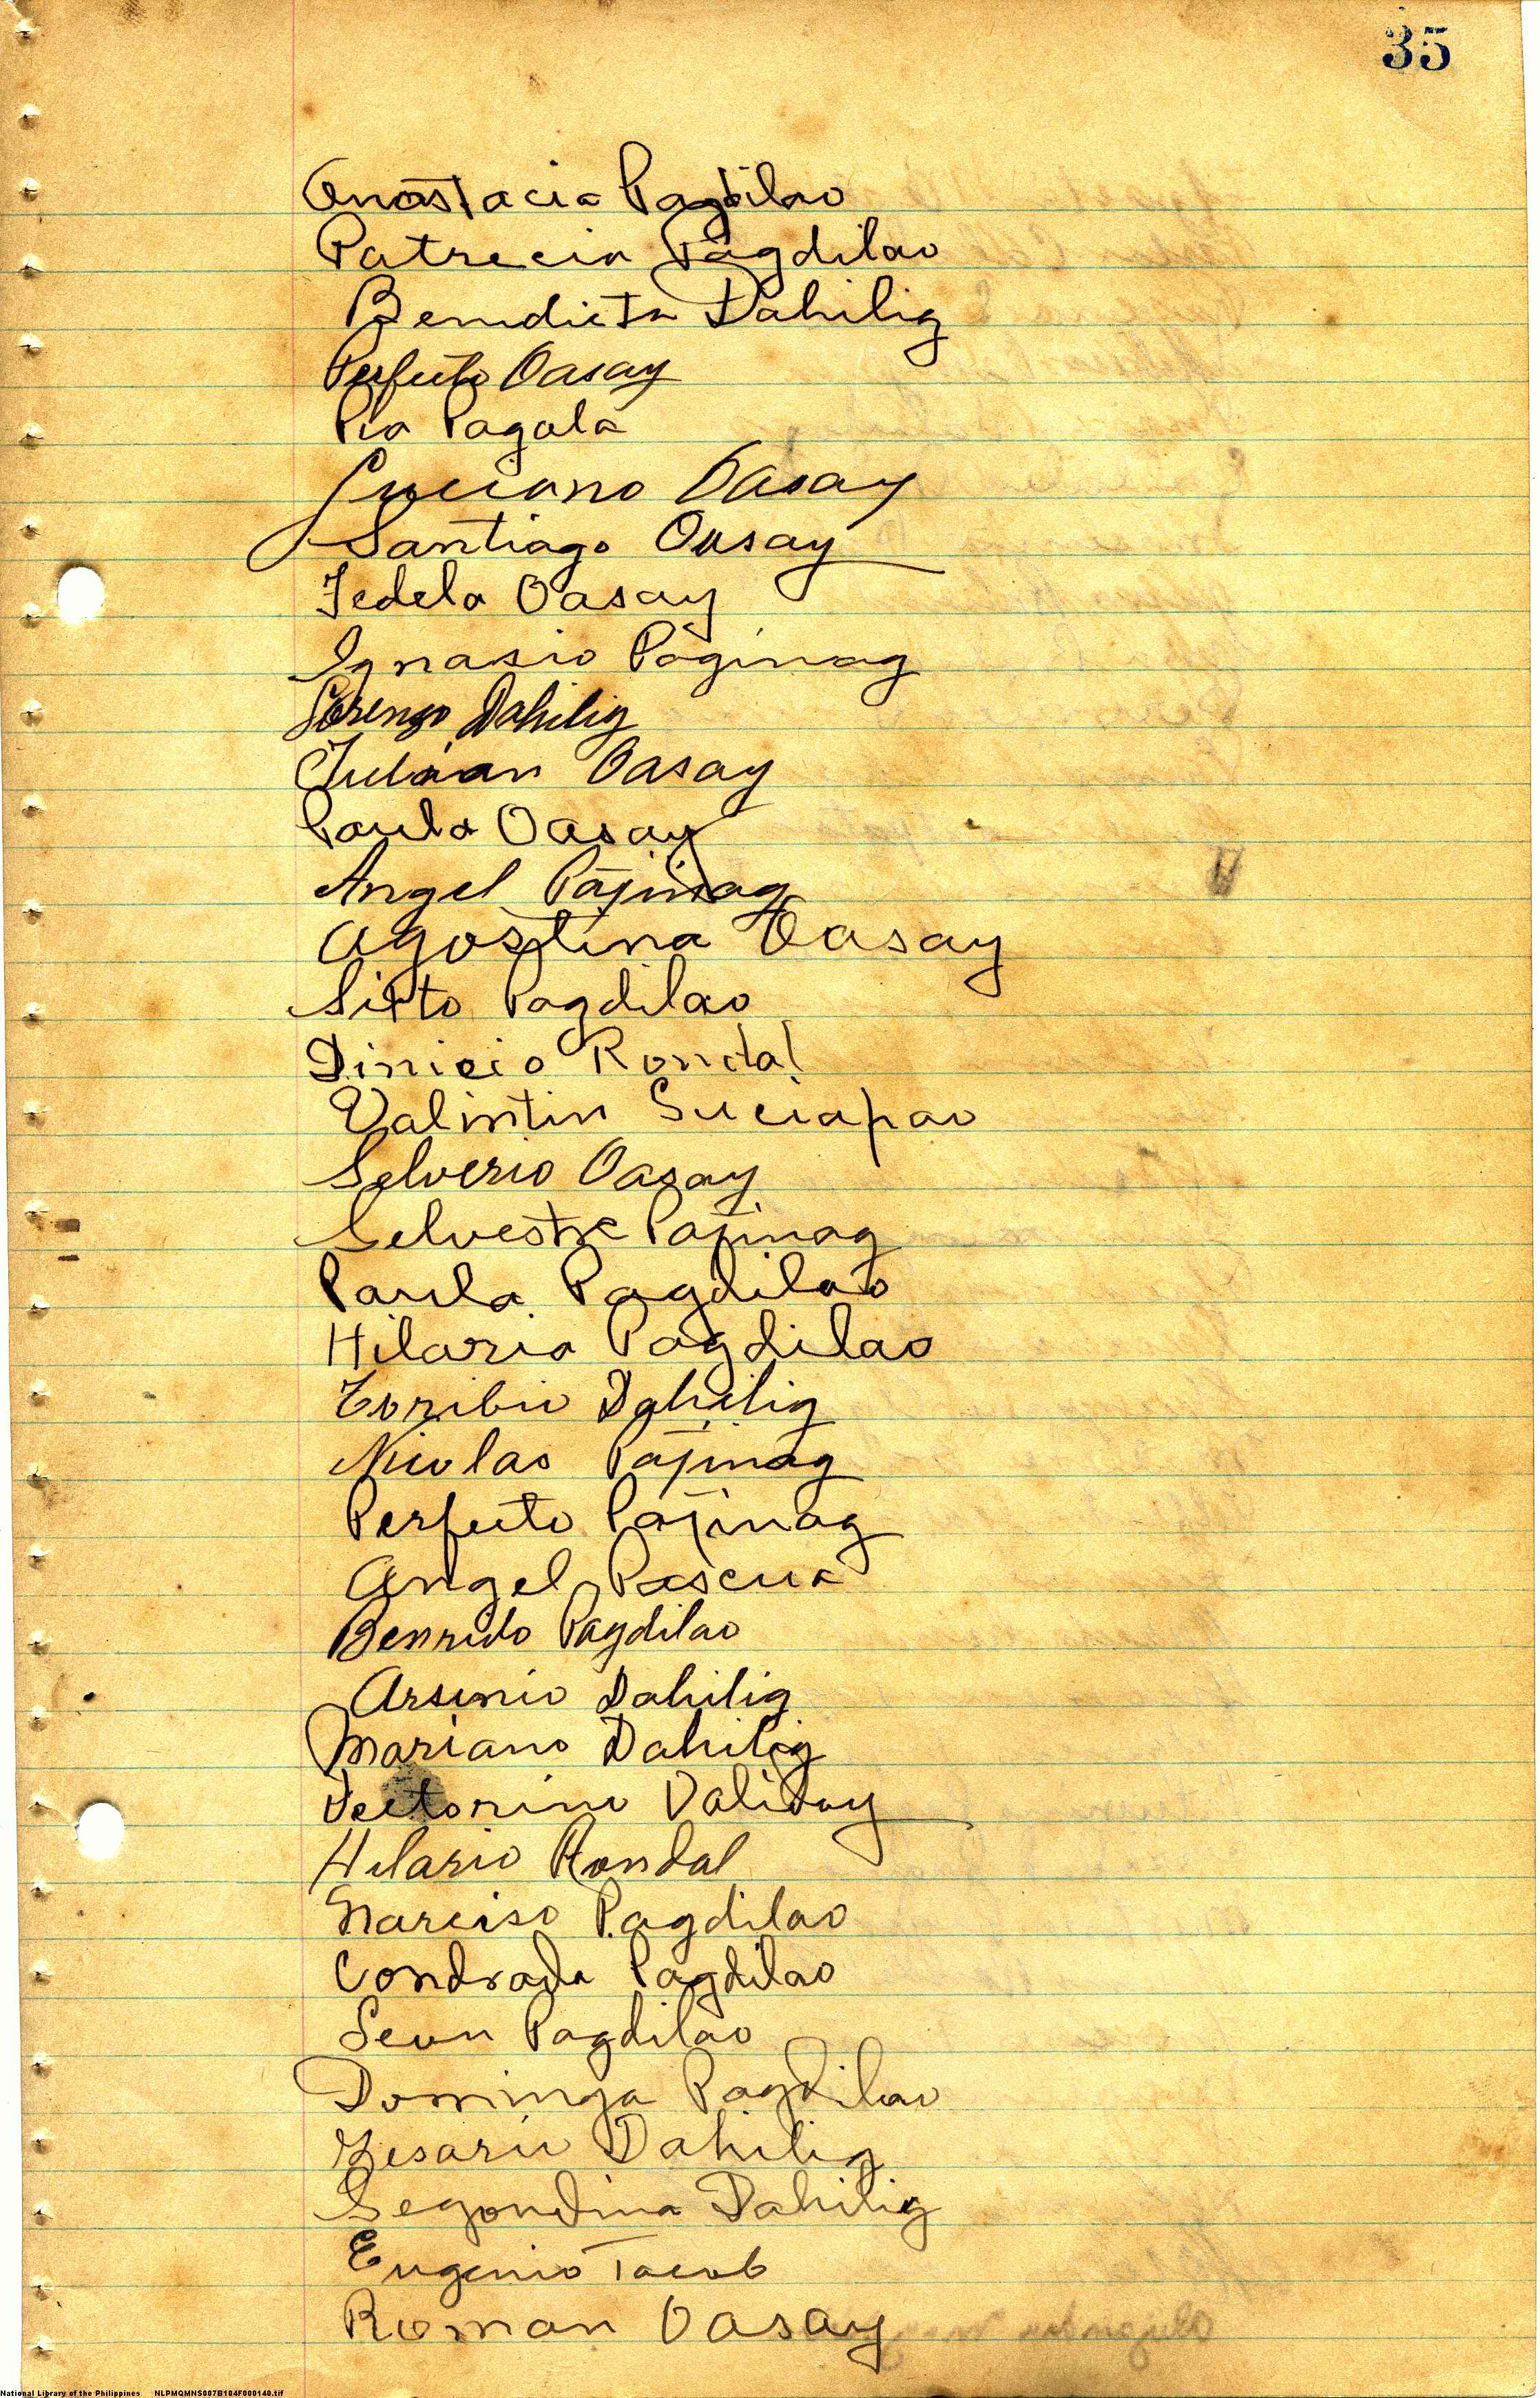 35
Anastacia Pagdilao
Patrecia Pagdilao
Benidicta Dahilig
Perfecto Oasay
Pia Pagala
Luciano Oasay
Santiago Oasay
Fedela Oasay
Ignasio Paginag
Lorenzo Dahilig
Julian Oasay
Paula Oasay
Angel Pajinag
Agostina Oasay
Sixto Pagdilao
Dinicio Rondal
Valintin Suciapao
Selverio Oasay
Selvestre Pajinag
Paula Pagdilao
Hilaria Pagdilao
Toribio Dahilig
Nicolas Pajinag
Perfecto Pajinag
Angel Pascua
Benrido Pagdilao
Arsinio Dahilig
Mariano Dahilig
Vectorino Daliday
Hilario Rondal
Narciso Pagdilao
Condrada Pagdilao
Leon Pagdilao
Dominga Pagdilao
Dahilig
Segondina Dahilig
Eugenio Tacub
Roman Oasay
National Library of the Philippines NLPMQMNS007B104F000140.tif